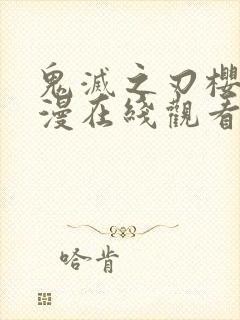 鬼滅之刃櫻
漫在綫觀看
哈肯